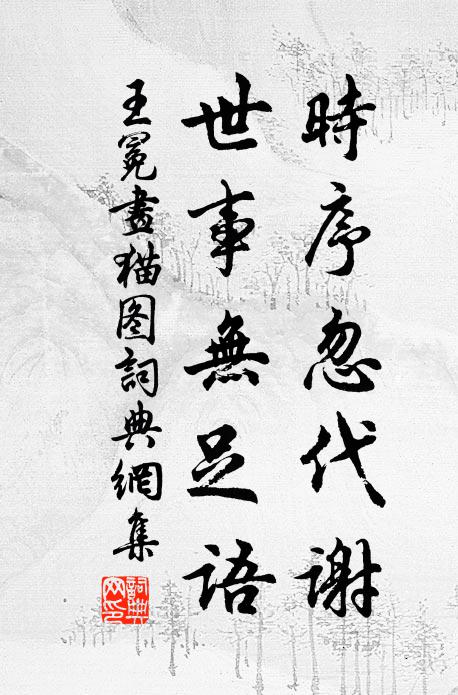 時序忽代謝
世事無足語
王冕畫猫图詞典網集
詞典
网印